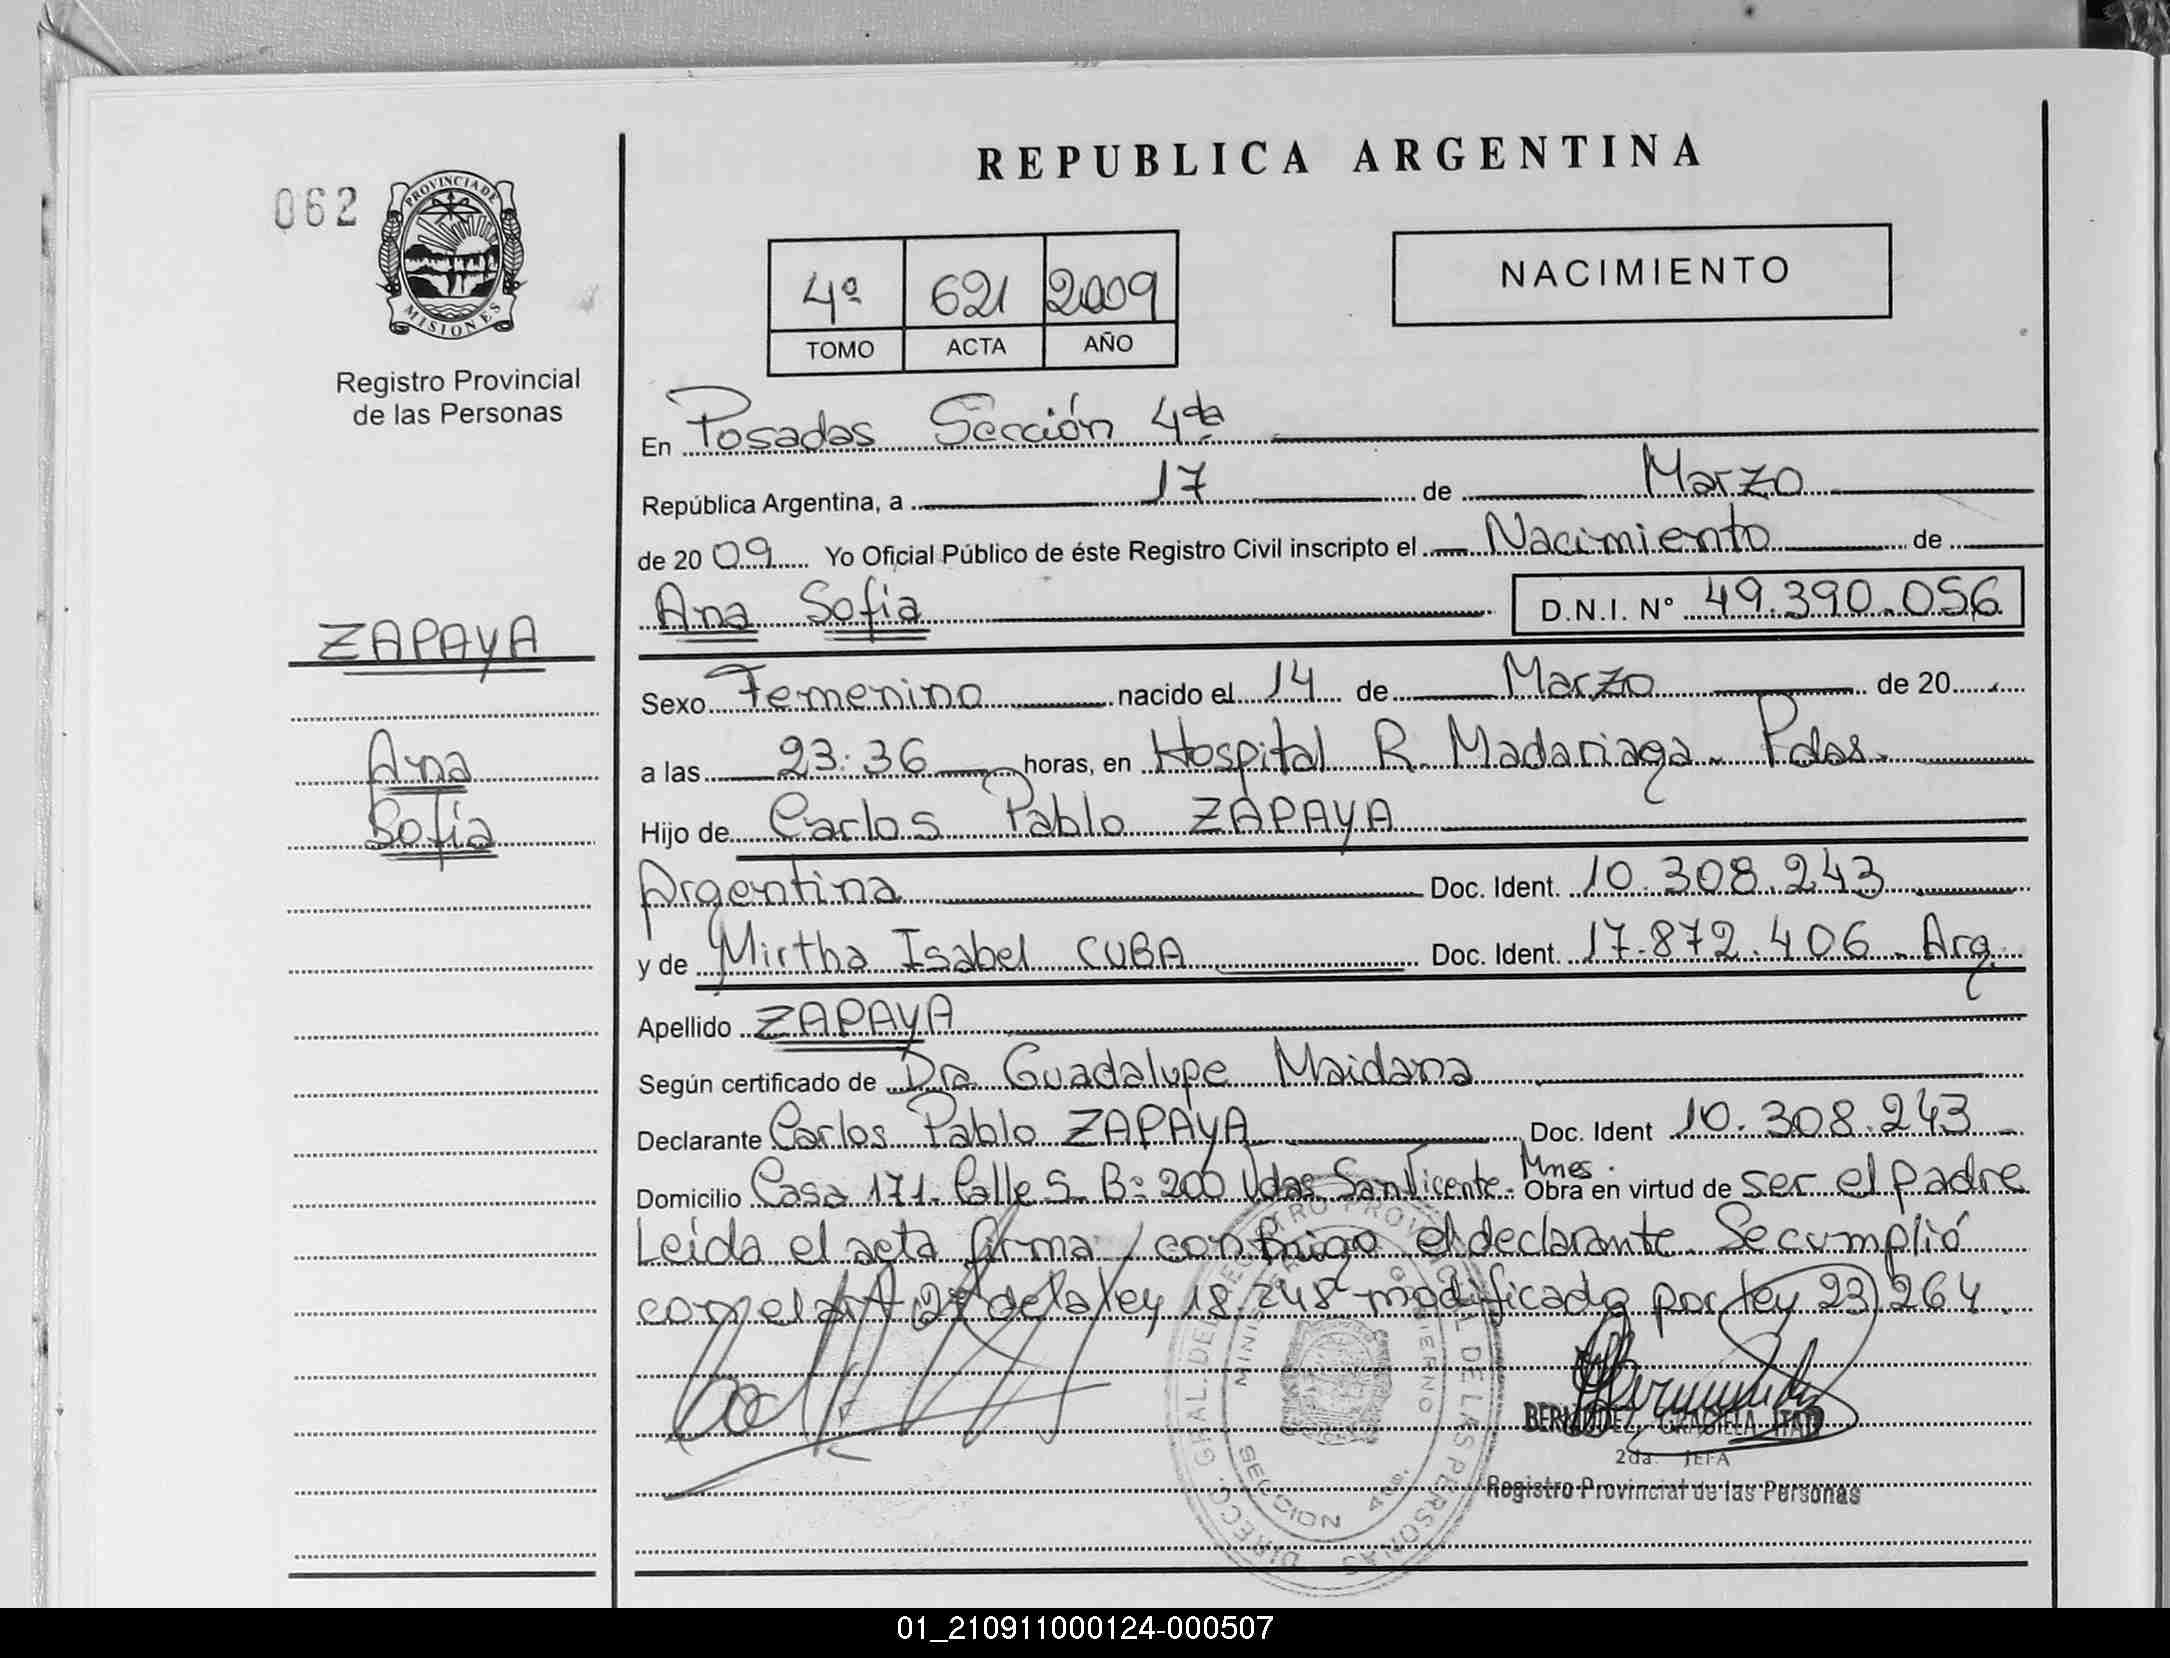 REPUBLICA ARGENTINA
062
PROVINCIA DE
MISIONES
Registro Provincial
de las Personas
NACIMIENTO
4º 621 2009
TOMO ACTA AÑO
En Posadas Sección 4ta
República Argentina, a 17 de Marzo
de 20 09 Yo Oficial Público de éste Registro Civil inscripto el Nacimiento de
Ana Sofia D.N.I. Nº 49.390.056
ZAPAYA
Ana
Sofia
Sexo Femenino nacido el 14 de Marzo de 20
a las 23:36 horas, en Hospital R. Madariaga - Pdas.
Hijo de Carlos Pablo ZAPAYA
Argentina Doc. Ident. 10.308.243
y de Mirtha Isabel CUBA Doc. Ident. 17.872.406 - Arg.
Apellido ZAPAYA
Según certificado de Dra Guadalupe Maidana
Declarante Carlos Pablo ZAPAYA Doc. Ident 10.308.243
Domicilio Casa 171. Calle S. Bº 200 Vdas San Vicente - Mnes. Obra en virtud de ser el padre
Leída el acta firma conmigo el declarante. Se cumplió
con el art 2º de la ley 18.248 modificado por ley 23.264.
DIRECC. GRAL. DEL REGISTRO PROVINCIAL DE LAS PERSONAS
MINISTERIO GOBIERNO
SECCION 4ta.
BERMUDEZ, GRACIELA ITATI
2da. JEFA
Registro Provincial de las Personas
01_210911000124-000507